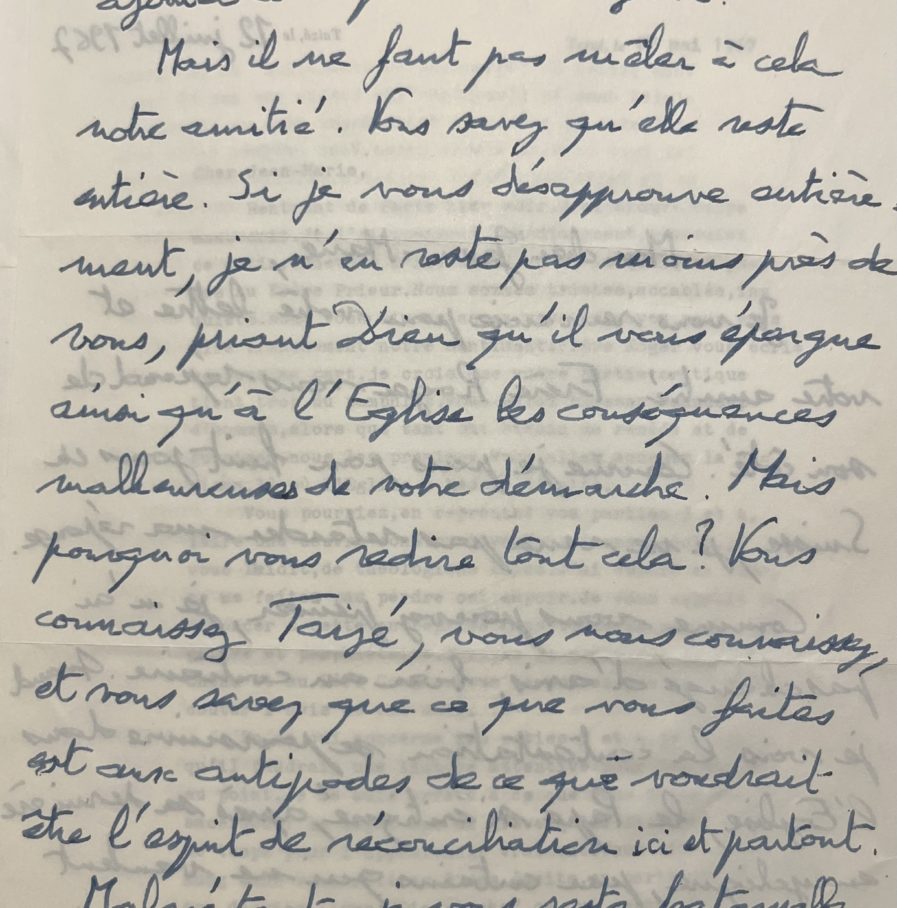 Mais il ne faut pas mêler à cela
notre amitié. Vous savez qu'elle reste
entière. Si je vous désapprouve entière-
ment, je n'en reste pas moins près de
vous, priant Dieu qu'il vous épargne
ainsi qu'à l'Eglise les conséquences
malheureuses de votre démarche. Mais
pourquoi vous redire tout cela? Vous
connaissez Taizé, vous nous connaissez,
et vous savez que ce que vous faites
est aux antipodes de ce que voudrait
être l'esprit de réconciliation ici et partout.
Malgré tout, je vous reste